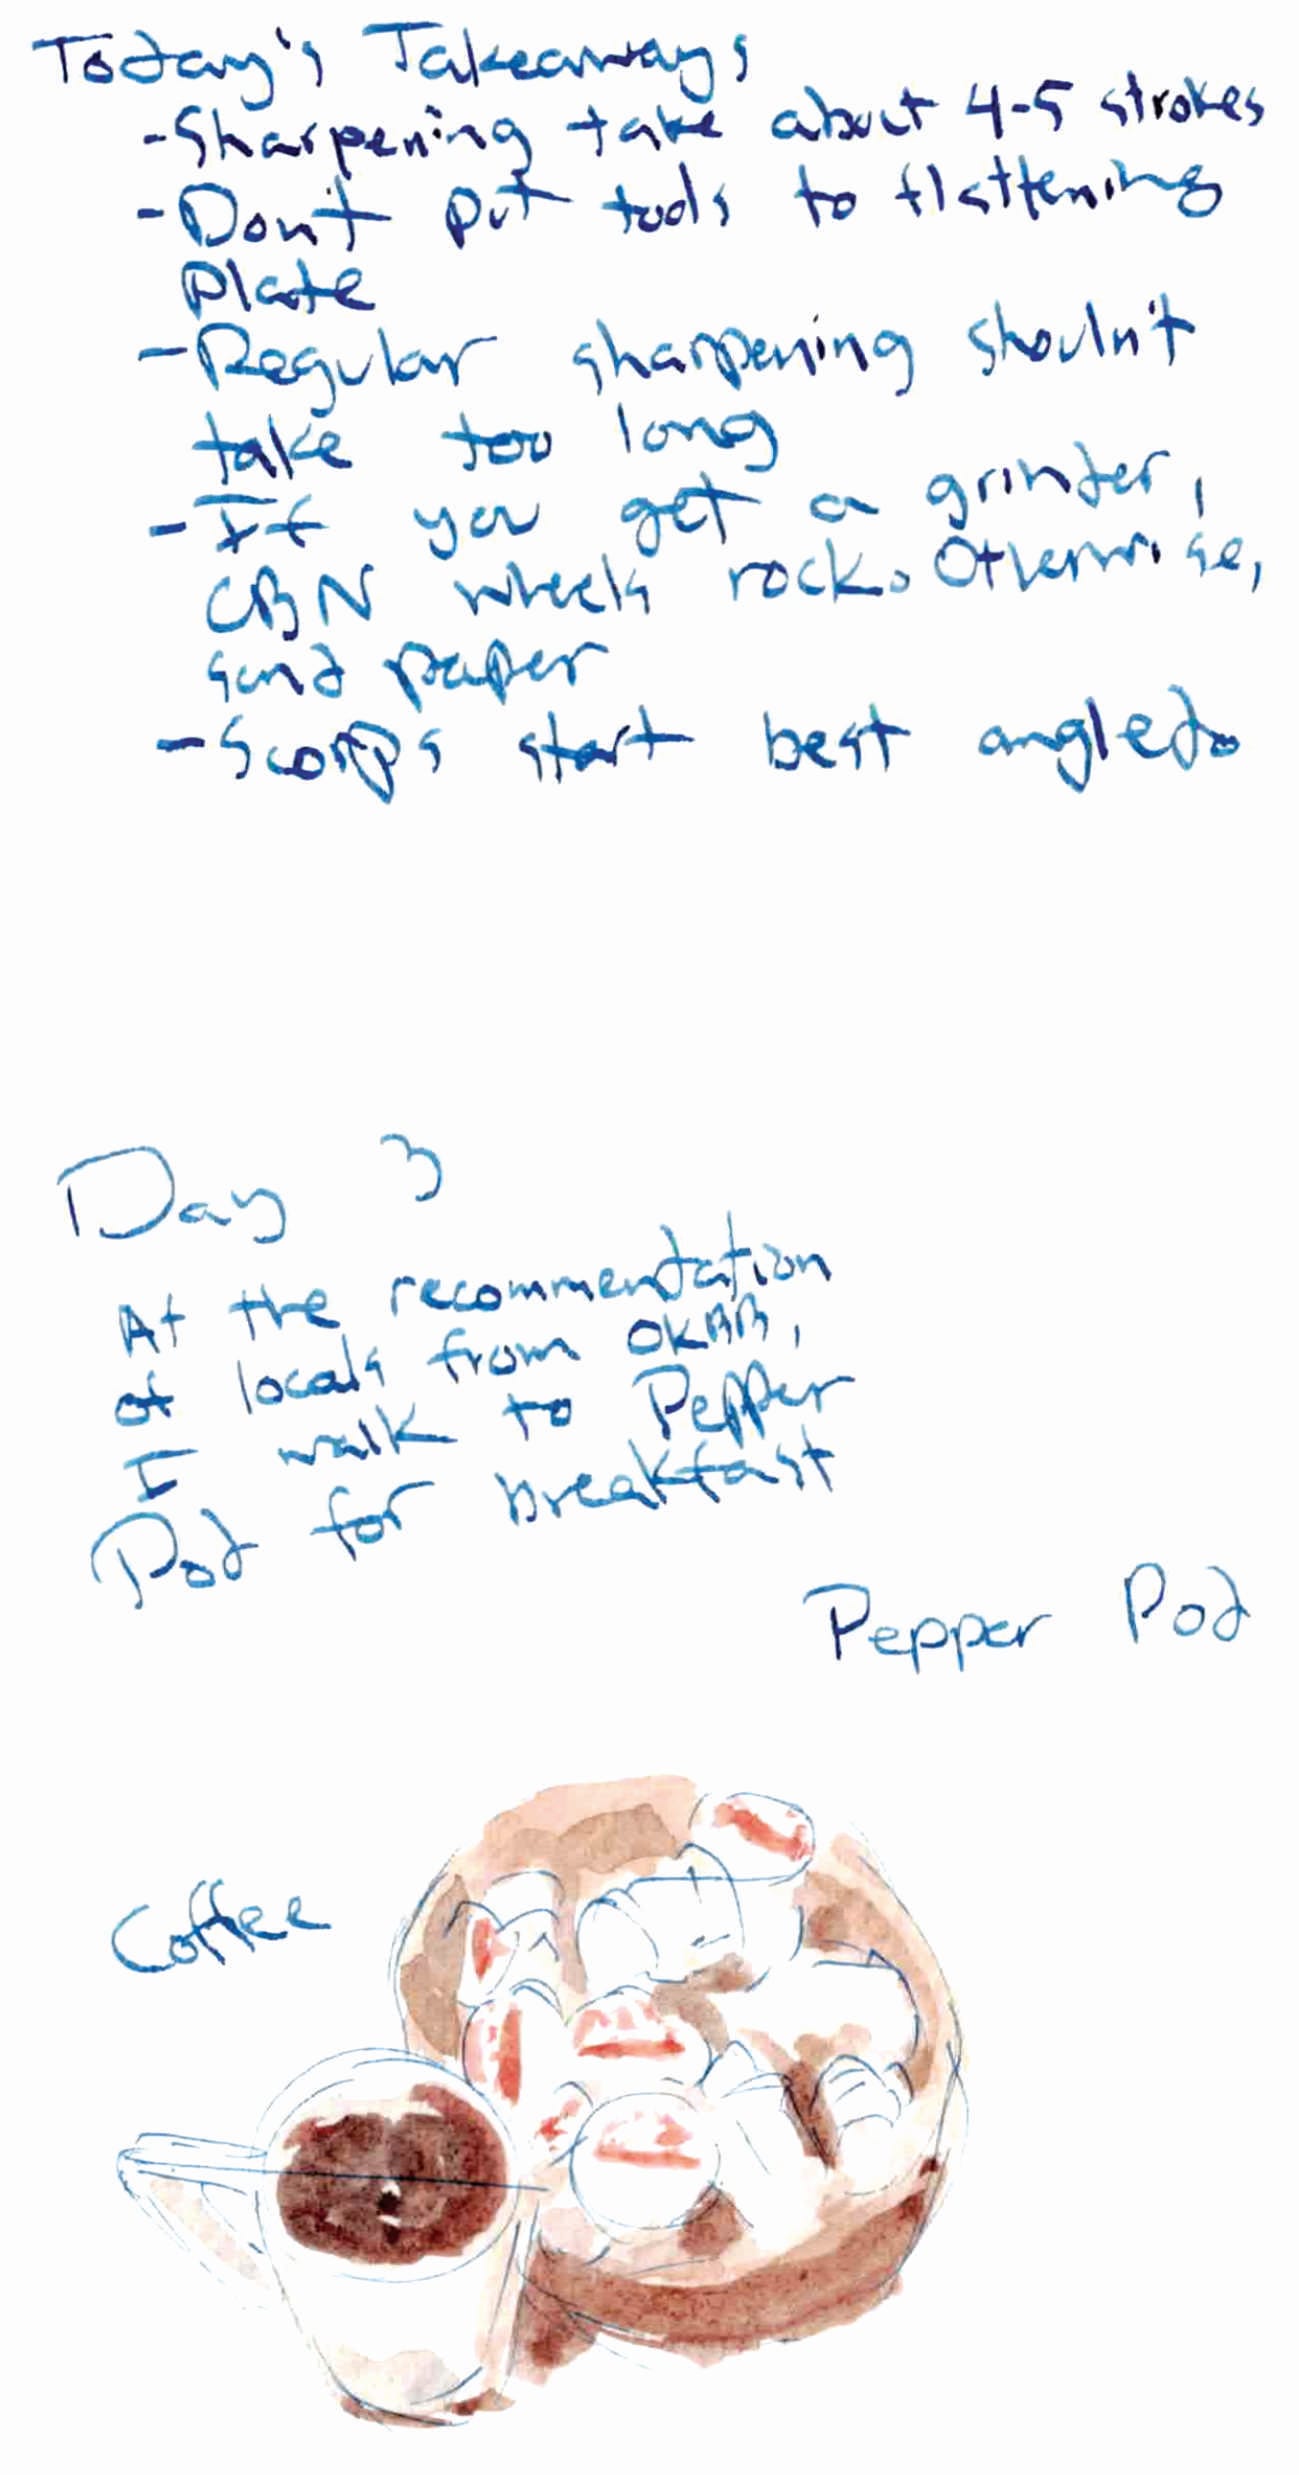 Today's Takeaways
-Sharpening take about 4-5 strokes
-Don't put tools to flattening
Plate
-Regular sharpening shouln't
take too long
-If you get a grinder,
CBN wheels rock. Otherwise,
sand paper
-Scorps start best angled.
Day 3
At the recommendation
of locals from OKBB,
I walk to Pepper
Pod for breakfast
Pepper Pod
Coffee